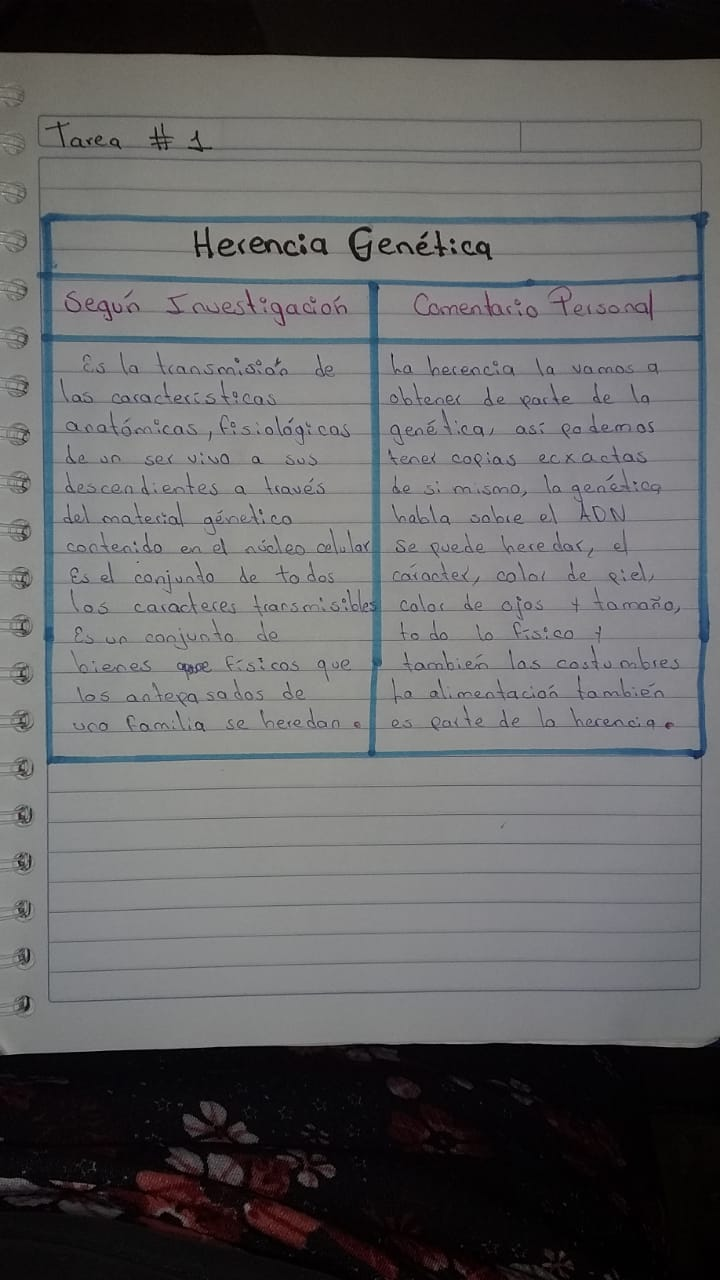 Tarea # 1
Herencia Genética
Según Investigación
Es la transmisión de
las características
anatómicas, fisiológicas
de un ser vivo a sus
descendientes a través
del material génetico
contenido en el núcleo celular
Es el conjunto de todos
los caracteres transmisibles
Es un conjunto de
bienes físicos que
los antepasados de
una familia se heredan.
Comentario Personal
La herencia la vamos a
obtener de parte de la
genética, así podemos
tener copias ecxactas
de si mismo, la genética
habla sobre el ADN
se puede heredar, el
carácter, color de piel,
color de ojos y tamaño,
todo lo físico y
también las costumbres
La alimentación también
es parte de la herencia.